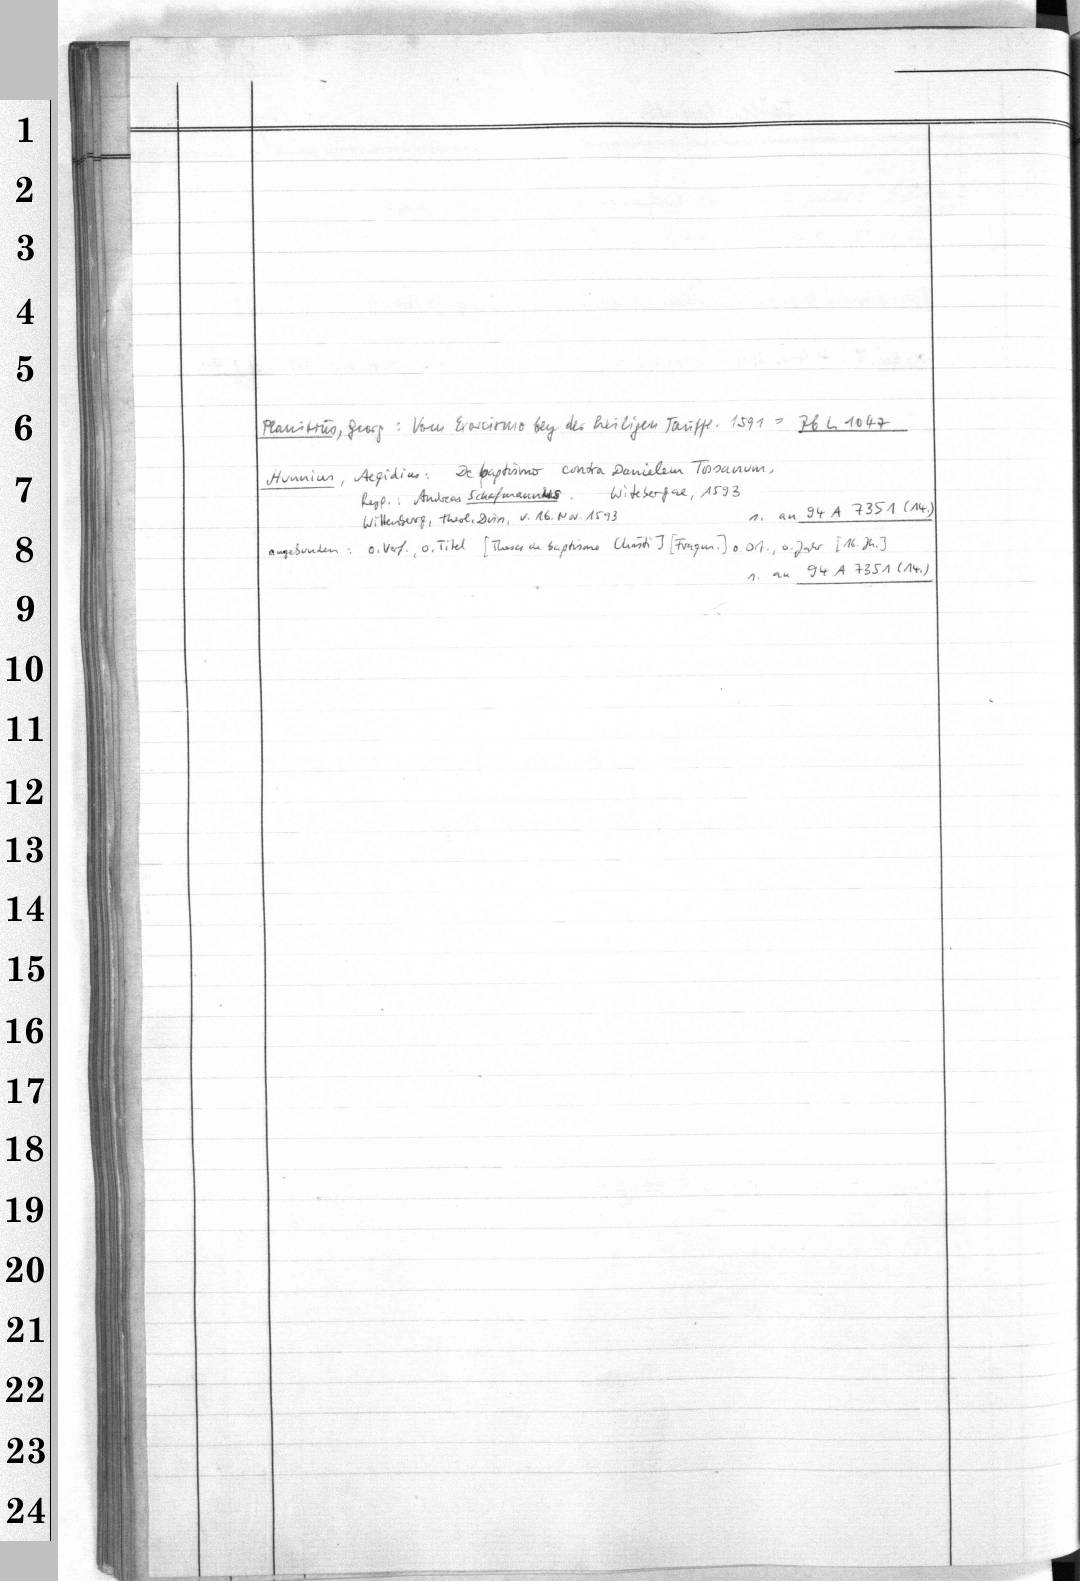 1
2
3
4
5
6
7
8
9
10
11
12
13
14
15
16
17
18
19
20
21
22
23
24
Georg : Vom Exorcismo bey der heiligen Tauffe. 1591 = L 1047
Hunnius, Aegidius: De baptismo contra Danielem Tossanum,
Resp.: Andreas Schafmannus. Witebergae, 1593
Wittenberg, theol. Diss. v. 16. Nov. 1593 1. an 94 A 7351 (14.)
angebunden: o. Verf., o. Titel [Theses de baptismo Christi] [Fragm.] o. Ort., o. Jahr [16. Jh.]
1. an 94 A 7351 (14.)